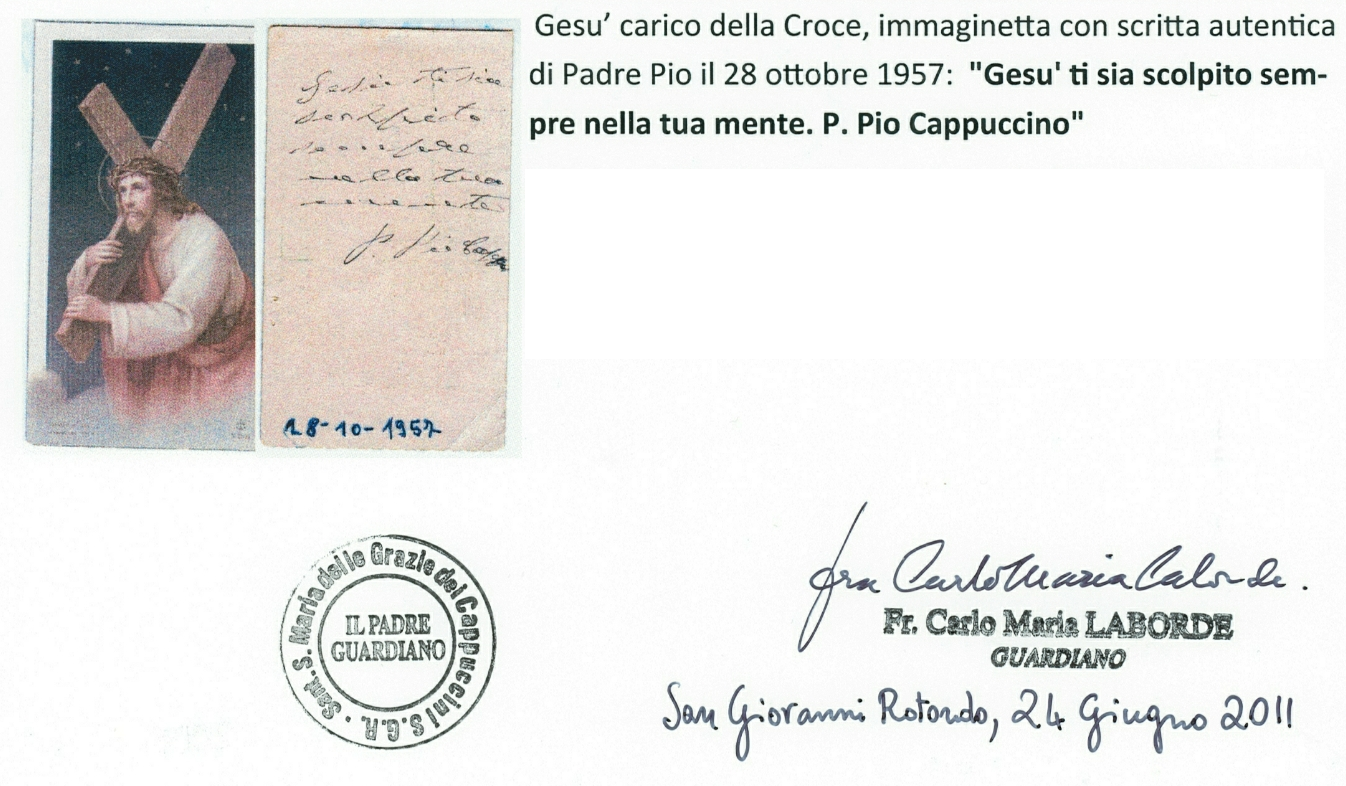 Gesu’ carico della Croce, immaginetta con scritta autentica
di Padre Pio il 28 ottobre 1957: "Gesu' ti sia scolpito sem-
pre nella tua mente. P. Pio Cappuccino"
Gesù ti sia
scolpito
sempre
nella tua
mente
P. Pio Capp
28-10-1957
Sant. S. Maria delle Grazie dei Cappuccini S.G.R.
IL PADRE
GUARDIANO
fra Carlo Maria Laborde.
Fr. Carlo Maria LABORDE
GUARDIANO
San Giovanni Rotondo, 24 Giugno 2011